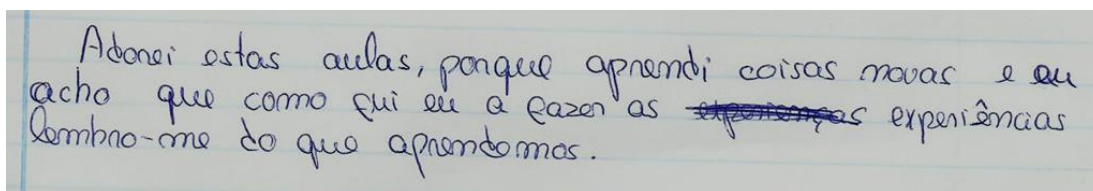 Adorei estas aulas, porque aprendi coisas novas e eu
acho que como fui eu a fazer as experiências
lembro-me do que aprendemos.